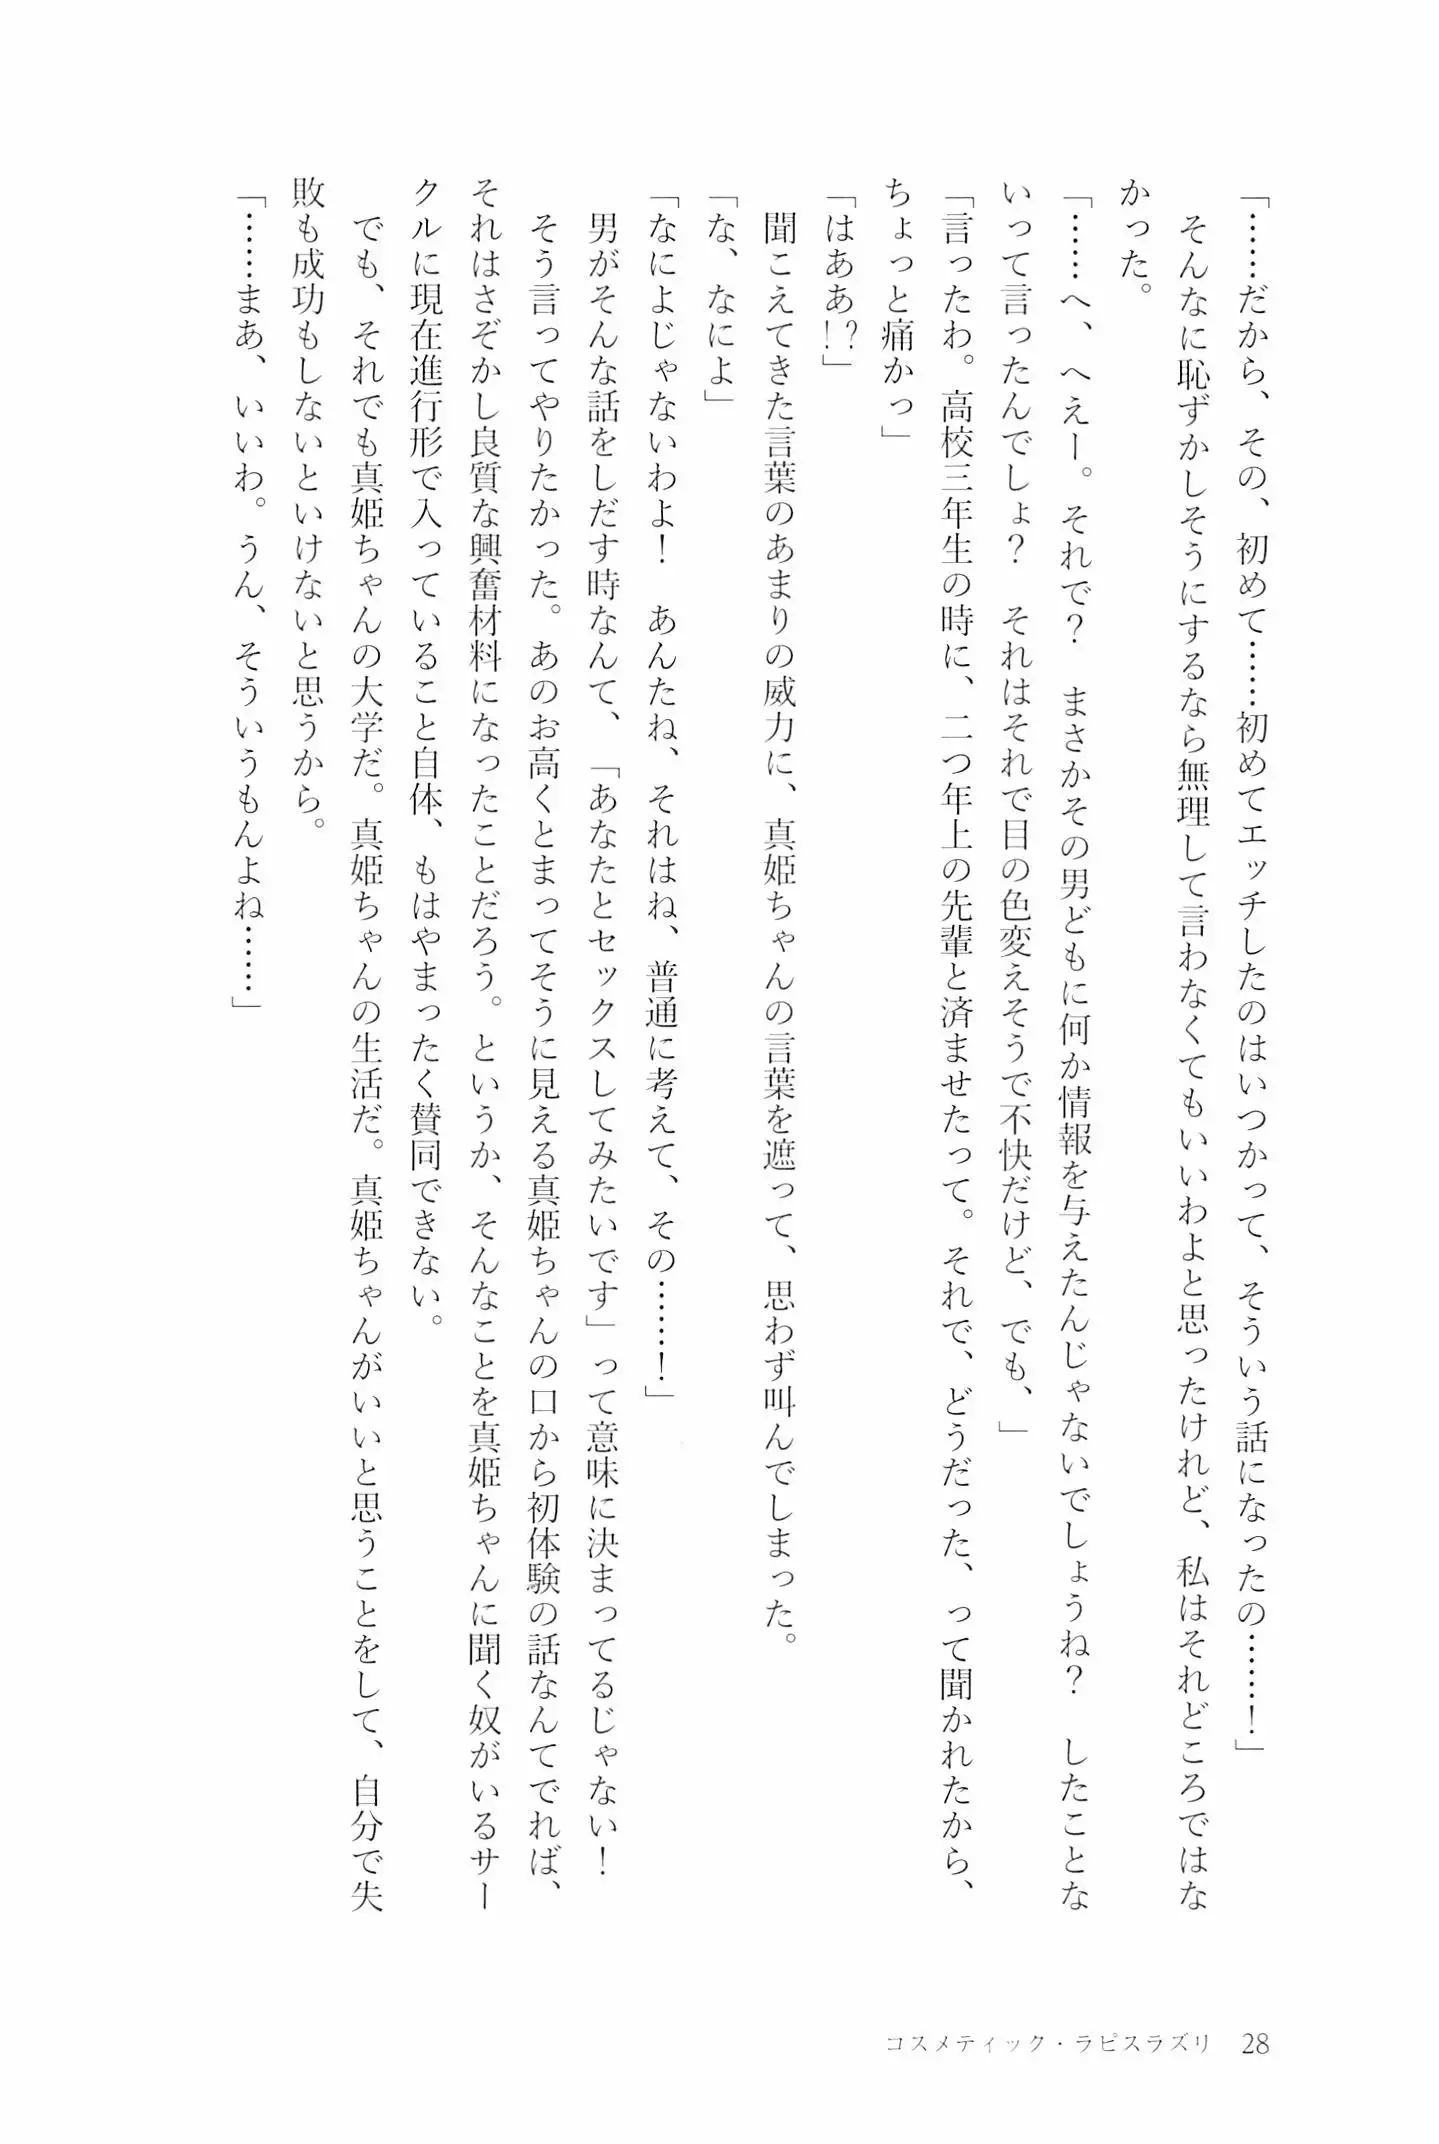 「……だから、その、初めて……初めてエッチしたのはいつかって、そういう話になったの……！」
　そんなに恥ずかしそうにするなら無理して言わなくてもいいわよと思ったけれど、私はそれどころではな
かった。
「……へ、へえー。それで？　まさかその男どもに何か情報を与えたんじゃないでしょうね？　したことな
いって言ったんでしょ？　それはそれで目の色変えそうで不快だけど、でも、」
「言ったわ。高校三年生の時に、二つ年上の先輩と済ませたって。それで、どうだった、って聞かれたから、
ちょっと痛かっ」
「はああ!?」
　聞こえてきた言葉のあまりの威力に、真姫ちゃんの言葉を遮って、思わず叫んでしまった。
「な、なによ」
「なによじゃないわよ！　あんたね、それはね、普通に考えて、その……！」
　男がそんな話をしだす時なんて、「あなたとセックスしてみたいです」って意味に決まってるじゃない！
　そう言ってやりたかった。あのお高くとまってそうに見える真姫ちゃんの口から初体験の話なんてでれば、
それはさぞかし良質な興奮材料になったことだろう。というか、そんなことを真姫ちゃんに聞く奴がいるサー
クルに現在進行形で入っていること自体、もはやまったく賛同できない。
　でも、それでも真姫ちゃんの大学だ。真姫ちゃんの生活だ。真姫ちゃんがいいと思うことをして、自分で失
敗も成功もしないといけないと思うから。
「……まあ、いいわ。うん、そういうもんよね……」
コスメティック・ラピスラズリ 28